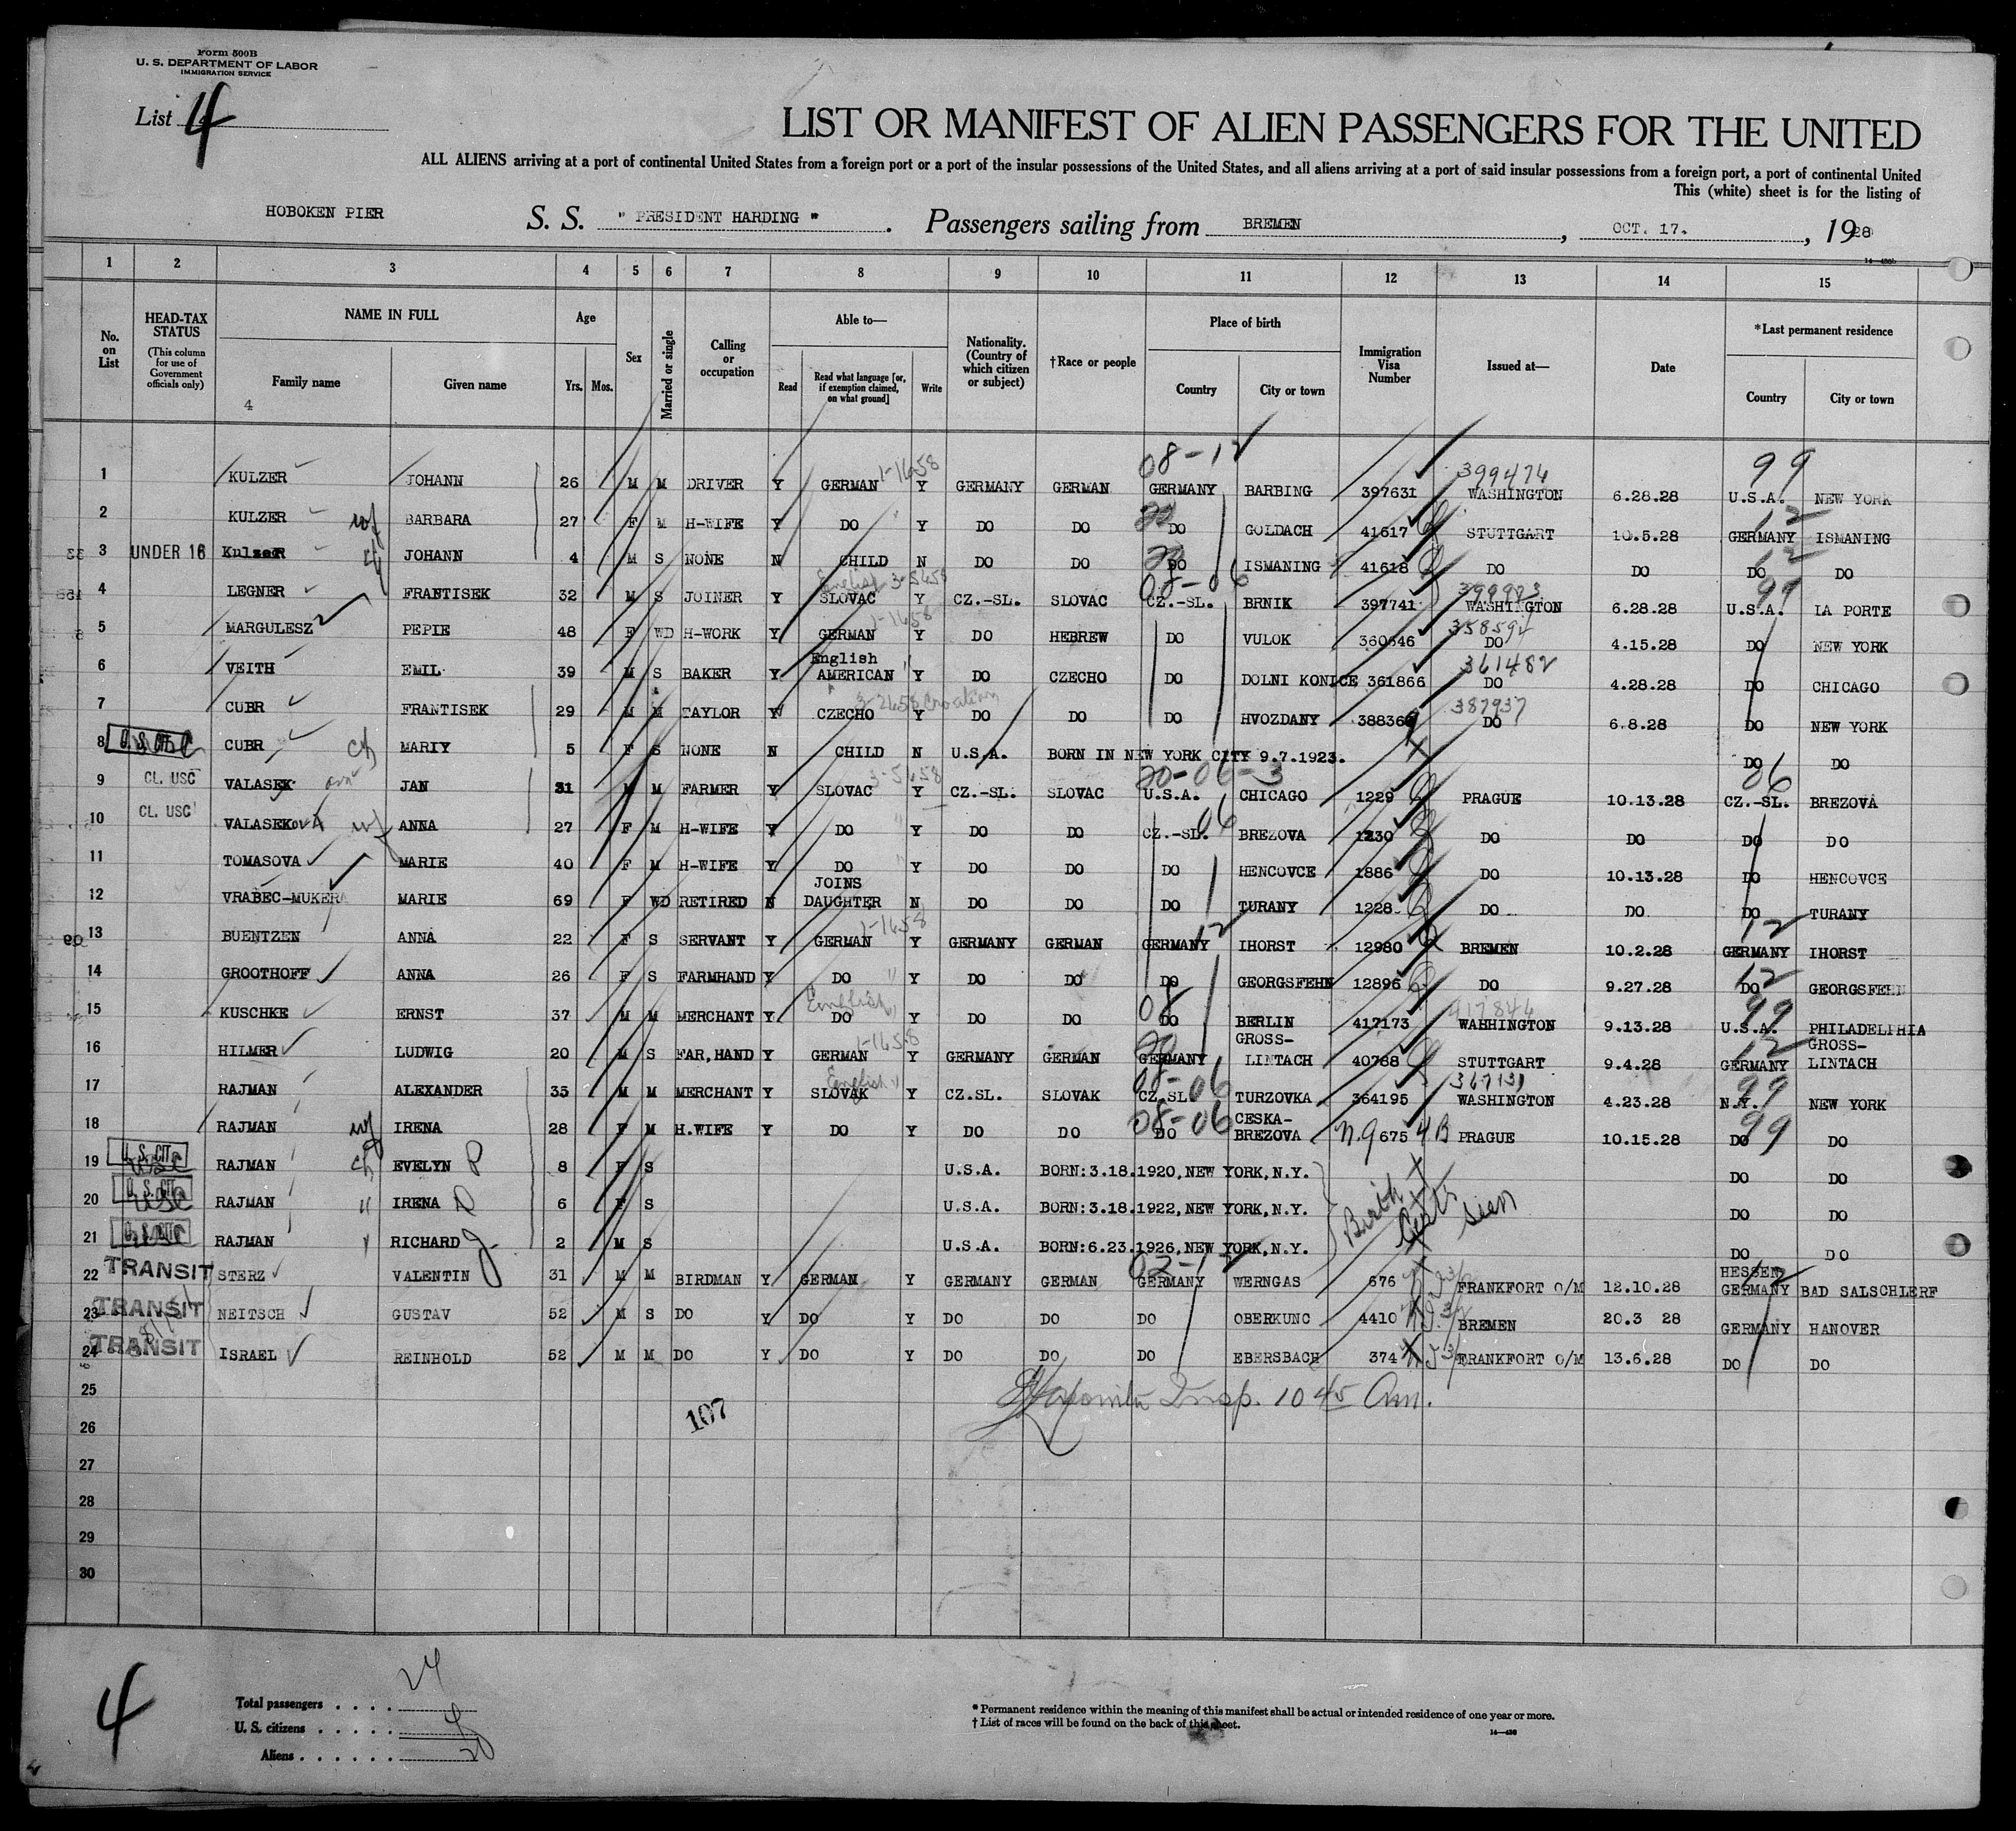 Form 500B
U. S. DEPARTMENT OF LABOR
IMMIGRATION SERVICE
List 4
LIST OR MANIFEST OF ALIEN PASSENGERS FOR THE UNITED
ALL ALIENS arriving at a port of continental United States from a foreign port or a port of the insular possessions of the United States, and all aliens arriving at a port of said insular possessions from a foreign port, a port of continental United
This (white) sheet is for the listing of
HOBOKEN PIER S. S. "PRESIDENT HARDING". Passengers sailing from BREMEN, OCT. 17., 1928
1 2 3 4 5 6 7 8 9 10 11 12 13 14 15
No. on List
HEAD-TAX STATUS (This column for use of Government officials only)
NAME IN FULL Family name Given name
Age Yrs. Mos.
Sex
Married or single
Calling or occupation
Able to— Read Read what language [or, if exemption claimed, on what ground] Write
Nationality. (Country of which citizen or subject)
†Race or people
Place of birth Country City or town
Immigration Visa Number
Issued at—
Date
*Last permanent residence Country City or town
4
08-12 399474 99
1 KULZER JOHANN 26 M M DRIVER Y GERMAN 1-1658 Y GERMANY GERMAN GERMANY BARBING 397631 WASHINGTON 6.28.28 U.S.A. NEW YORK
2 KULZER wf BARBARA 27 F M H-WIFE Y DO Y DO DO DO GOLDACH 41617 STUTTGART 10.5.28 GERMANY ISMANING
3 UNDER 16 Kulzer JOHANN 4 M S NONE N CHILD N DO DO DO ISMANING 41618 DO DO DO DO
4 LEGNER FRANTISEK 32 M S JOINER Y SLOVAC Y CZ.-SL. SLOVAC CZ.-SL. BRNIK 397741 WASHINGTON 6.28.28 U.S.A. LA PORTE
5 MARGULESZ PEPIE 48 F WD H-WORK Y GERMAN Y DO HEBREW DO VULOK 360646 DO 4.15.28 DO NEW YORK
6 VEITH EMIL 39 M S BAKER Y English AMERICAN Y DO CZECHO DO DOLNI KONICE 361866 361482 DO 4.28.28 DO CHICAGO
7 CUBR FRANTISEK 29 M M TAYLOR Y CZECHO Y DO DO DO HVOZDANY 388360 387937 DO 6.8.28 DO NEW YORK
8 U. S. CIT. CUBR ch MARIY 5 F S NONE N CHILD N U.S.A. BORN IN NEW YORK CITY 9.7.1923. DO DO
9 CL. USC VALASEK JAN 31 M M FARMER Y SLOVAC Y CZ.-SL. SLOVAC U.S.A. CHICAGO 1229 PRAGUE 10.13.28 CZ.-SL. BREZOVA
10 CL. USC VALASEKOVA wf ANNA 27 F M H-WIFE Y DO Y DO DO CZ.-SL. BREZOVA 1230 DO DO DO DO
11 TOMASOVA MARIE 40 F M H-WIFE Y DO Y DO DO DO HENCOVCE 1886 DO 10.13.28 DO HENCOVCE
12 VRABEC-MUKERA MARIE 69 F WD RETIRED N JOINS DAUGHTER N DO DO DO TURANY 1228 DO DO DO TURANY
13 BUENTZEN ANNA 22 F S SERVANT Y GERMAN 1-1658 Y GERMANY GERMAN GERMANY IHORST 12980 BREMEN 10.2.28 GERMANY IHORST
14 GROOTHOFF ANNA 26 F S FARMHAND Y DO Y DO DO DO GEORGSFEHN 12896 DO 9.27.28 DO GEORGSFEHN
15 KUSCHKE ERNST 37 M M MERCHANT Y English DO Y DO DO DO BERLIN 417173 417844 WAHHINGTON 9.13.28 U.S.A. PHILADELPHIA
16 HILMER LUDWIG 20 M S FAR,HAND Y GERMAN 1-1658 Y GERMANY GERMAN GERMANY GROSS-LINTACH 40788 STUTTGART 9.4.28 GERMANY GROSS-LINTACH
17 RAJMAN ALEXANDER 35 M M MERCHANT Y English SLOVAK Y CZ.SL. SLOVAK CZ.SL TURZOVKA 364195 WASHINGTON 4.23.28 N.Y. NEW YORK
18 RAJMAN wf IRENA 28 F M H.WIFE Y DO Y DO DO 08-06 DO CESKA-BREZOVA 675 PRAGUE 10.15.28 99 DO DO
19 U. S. CIT. RAJMAN ch EVELYN P 8 F S U.S.A. BORN:3.18.1920,NEW YORK,N.Y. DO DO
20 U. S. CIT. RAJMAN " IRENA 6 F S U.S.A. BORN:3.18.1922,NEW YORK,N.Y. DO DO
Birth Certs seen
21 U. S. CIT. RAJMAN RICHARD J. 2 M S U.S.A. BORN:6.23.1926,NEW YORK,N.Y. DO DO
22 TRANSIT STERZ VALENTIN 31 M M BIRDMAN Y GERMAN Y GERMANY GERMAN GERMANY WERNGAS 676 FRANKFORT O/M 12.10.28 HESSEN GERMANY BAD SALSCHLERF
23 TRANSIT NEITSCH GUSTAV 52 M S DO Y DO Y DO DO DO OBERKUNC 4410 BREMEN 20.3 28 GERMANY HANOVER
24 TRANSIT ISRAEL REINHOLD 52 M M DO Y DO Y DO DO DO EBERSBACH 374 FRANKFORT O/M 13.6.28 DO DO
25
Insp. 10 45 Am.
107
26
27
28
29
30
4
Total passengers . . . . 24
U. S. citizens . . . . . 4
Aliens . . . . . . 20
* Permanent residence within the meaning of this manifest shall be actual or intended residence of one year or more.
† List of races will be found on the back of this sheet.